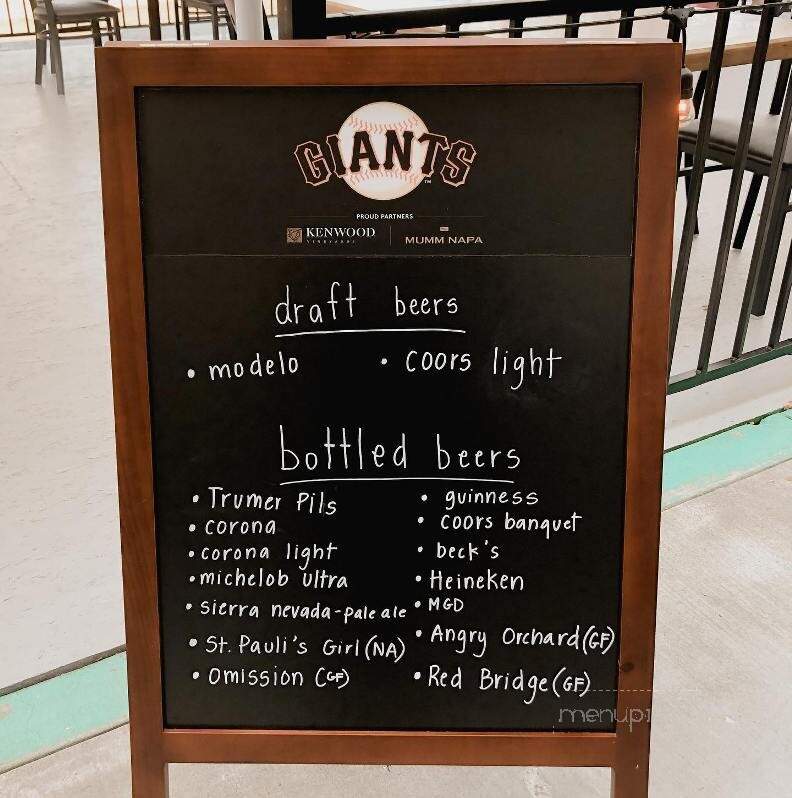 GIANTS
TM
PROUD PARTNERS
KENWOOD
VINEYARDS
MUMM NAPA
draft beers
• modelo • coors light
bottled beers
• Trumer Pils
• corona
• corona light
• michelob ultra
• sierra nevada-pale ale
• St. Pauli's Girl (NA)
• Omission (GF)
• guinness
• coors banquet
• beck's
• Heineken
• MGD
• Angry Orchard (GF)
• Red Bridge (GF)
menupi